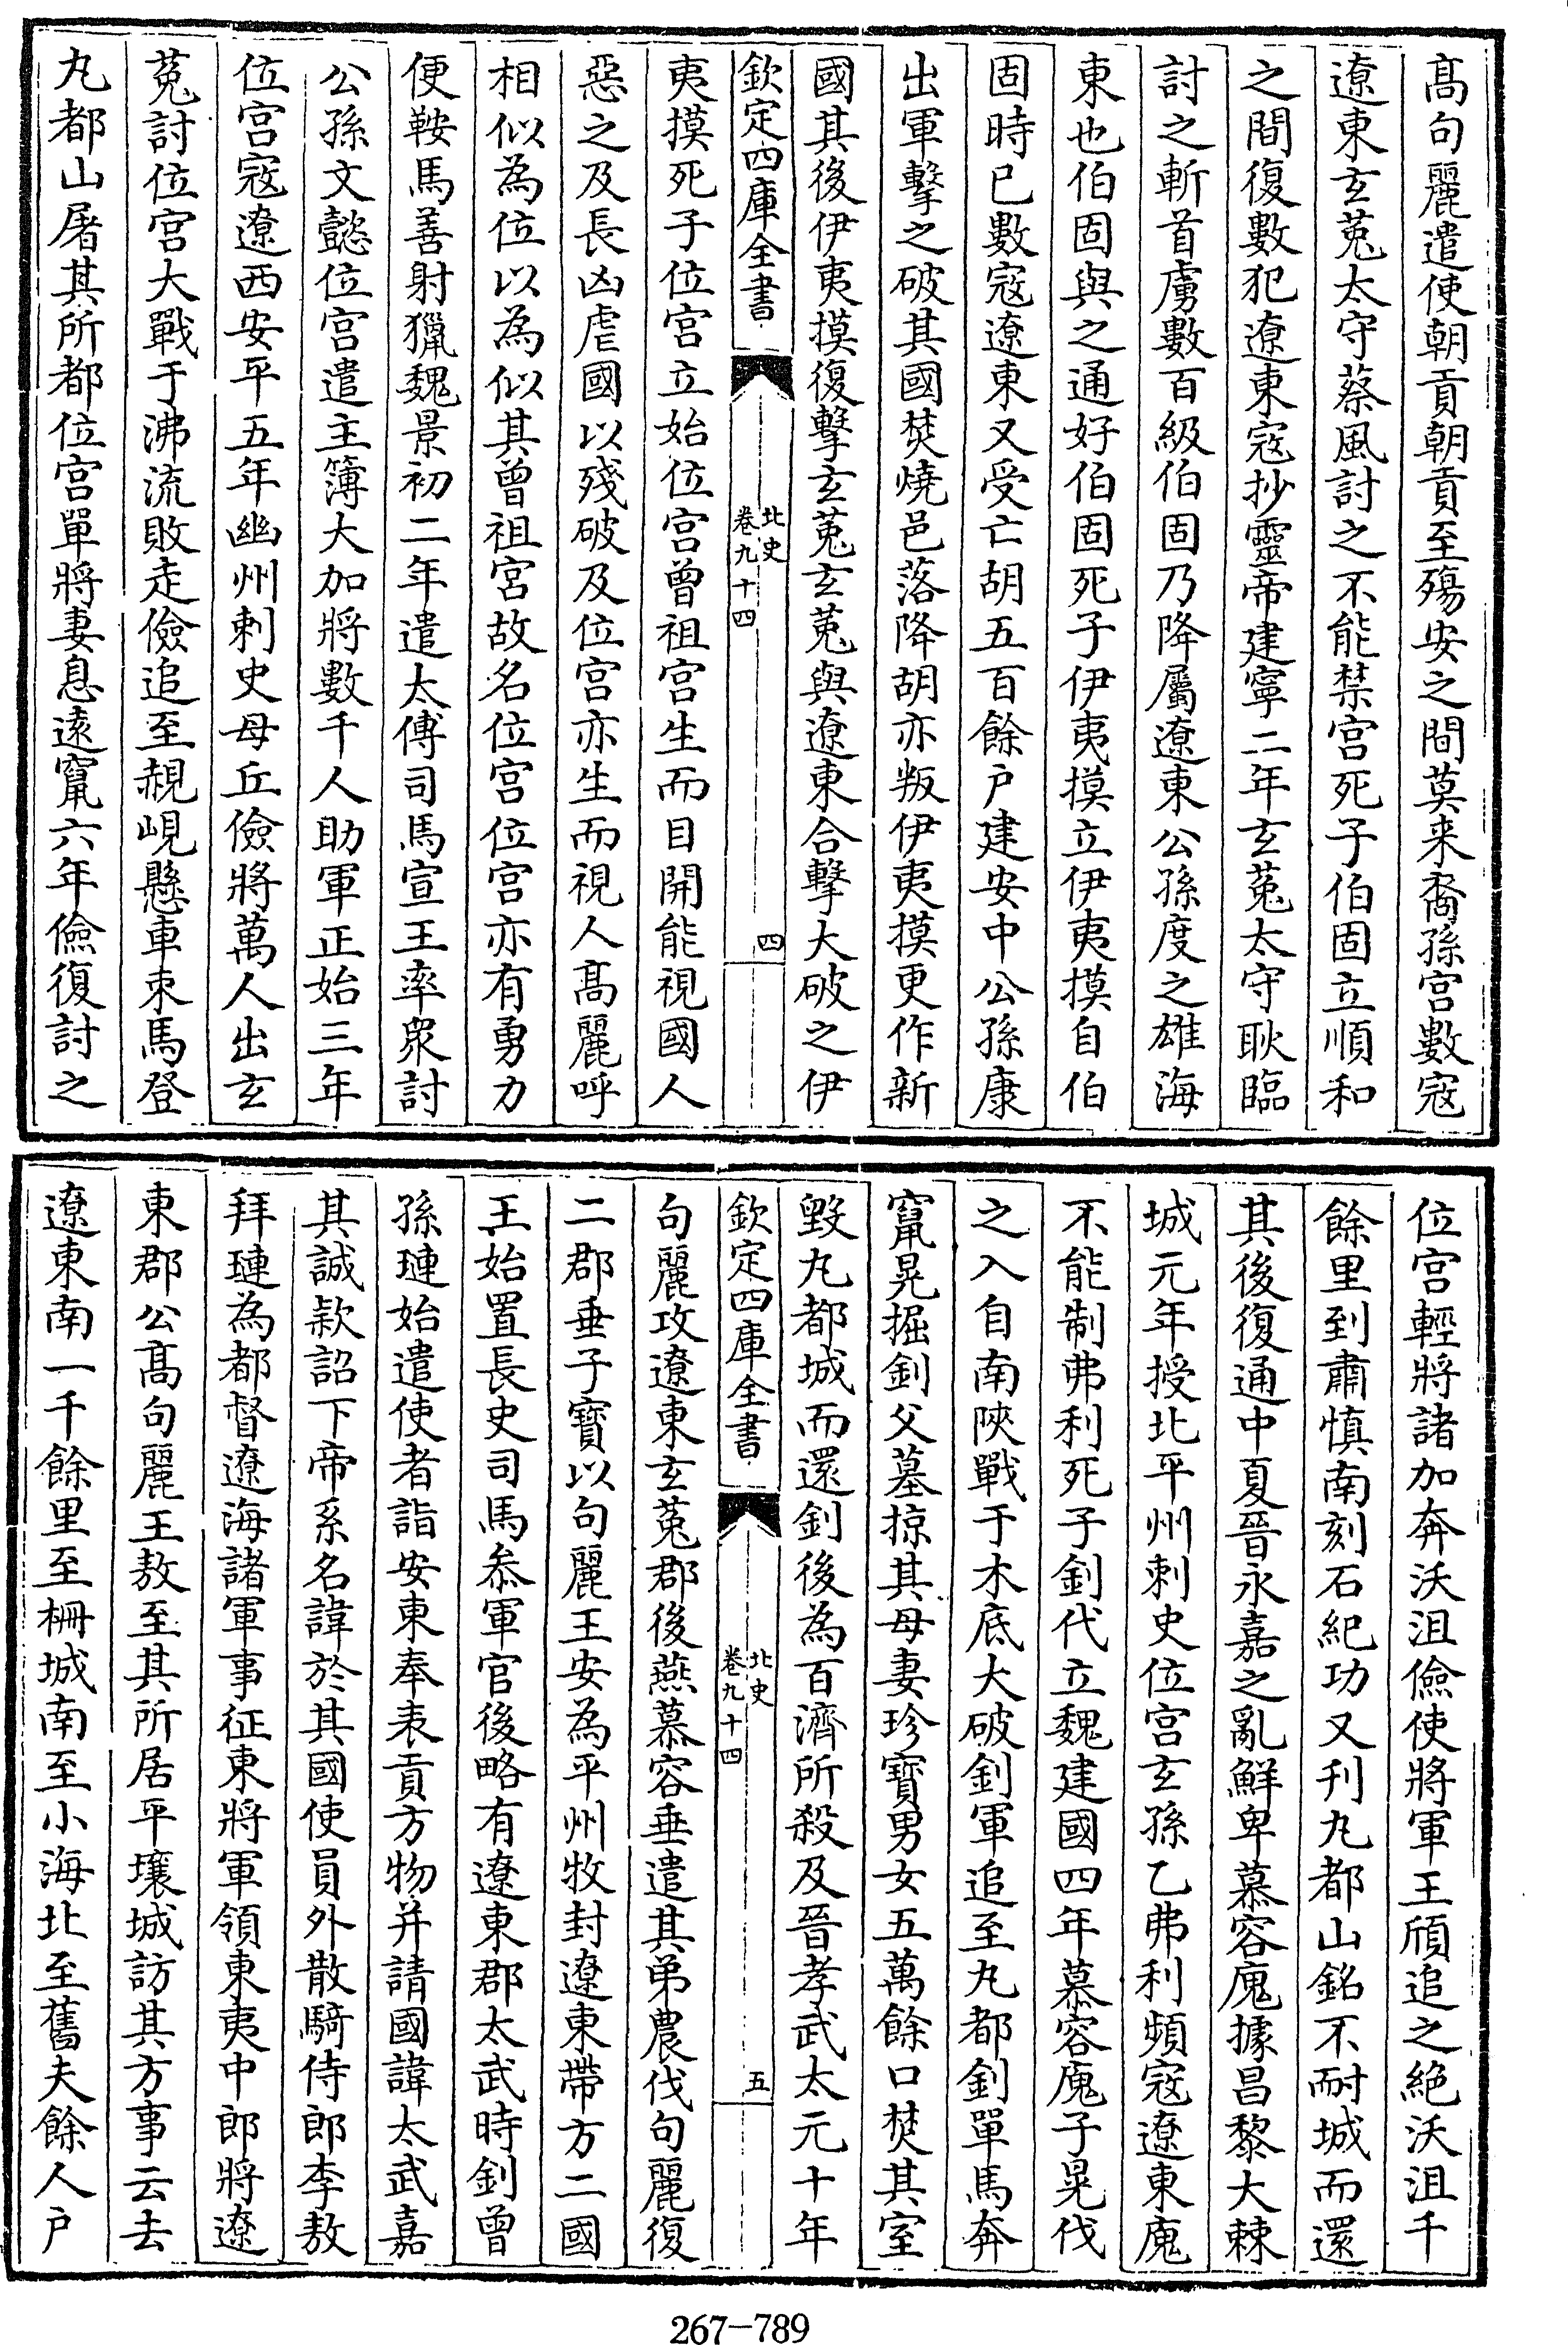 髙句麗遣使朝貢朝貢至殤安之間莫来裔孫宫數寇
遼東玄菟太守蔡風討之不能禁宫死子伯固立順和
之間復數犯遼東寇抄靈帝建寧二年玄菟太守耿臨
討之斬首虜數百級伯固乃降屬遼東公孫度之雄海
東也伯固與之通好伯固死子伊夷摸立伊夷摸自伯
固時已數寇遼東又受亡胡五百餘户建安中公孫康
出軍擊之破其國焚燒邑落降胡亦叛伊夷摸更作新
國其後伊夷摸復擊玄菟玄菟與遼東合擊大破之伊
欽定四庫全書
北史
卷九十四
四
夷摸死子位宫立始位宫曾祖宫生而目開能視國人
惡之及長凶虐國以殘破及位宫亦生而視人髙麗呼
相似為位以為似其曾祖宫故名位宫位宫亦有勇力
便鞍馬善射獵魏景初二年遣太傅司馬宣王率衆討
公孫文懿位宫遣主簿大加將數千人助軍正始三年
位宫寇遼西安平五年幽州刺史母丘儉將萬人出玄
菟討位宫大戰于沸流敗走儉追至䞓峴懸車束馬登
丸都山屠其所都位宫單將妻息遠竄六年儉復討之
位宫輕將諸加奔沃沮儉使將軍王頎追之絶沃沮千
餘里到肅慎南刻石紀功又刋丸都山銘不耐城而還
其後復通中夏晉永嘉之亂鮮卑慕容廆據昌黎大棘
城元年授北平州刺史位宫玄孫乙弗利頻寇遼東廆
不能制弗利死子釗代立魏建國四年慕容廆子晃伐
之入自南陜戰于木底大破釗軍追至丸都釗單馬奔
竄晃掘釗父墓掠其母妻珍寶男女五萬餘口焚其室
毀丸都城而還釗後為百濟所殺及晉孝武太元十年
欽定四庫全書
北史
卷九十四
五
句麗攻遼東玄菟郡後燕慕容垂遣其弟農伐句麗復
二郡垂子寳以句麗王安為平州牧封遼東帶方二國
王始置長史司馬叅軍官後略有遼東郡太武時釗曾
孫璉始遣使者詣安東奉表貢方物并請國諱太武嘉
其誠欵詔下帝系名諱於其國使員外散騎侍郎李敖
拜璉為都督遼海諸軍事征東將軍領東夷中郎將遼
東郡公髙句麗王敖至其所居平壤城訪其方事云去
遼東南一千餘里至柵城南至小海北至舊夫餘人户
267-789